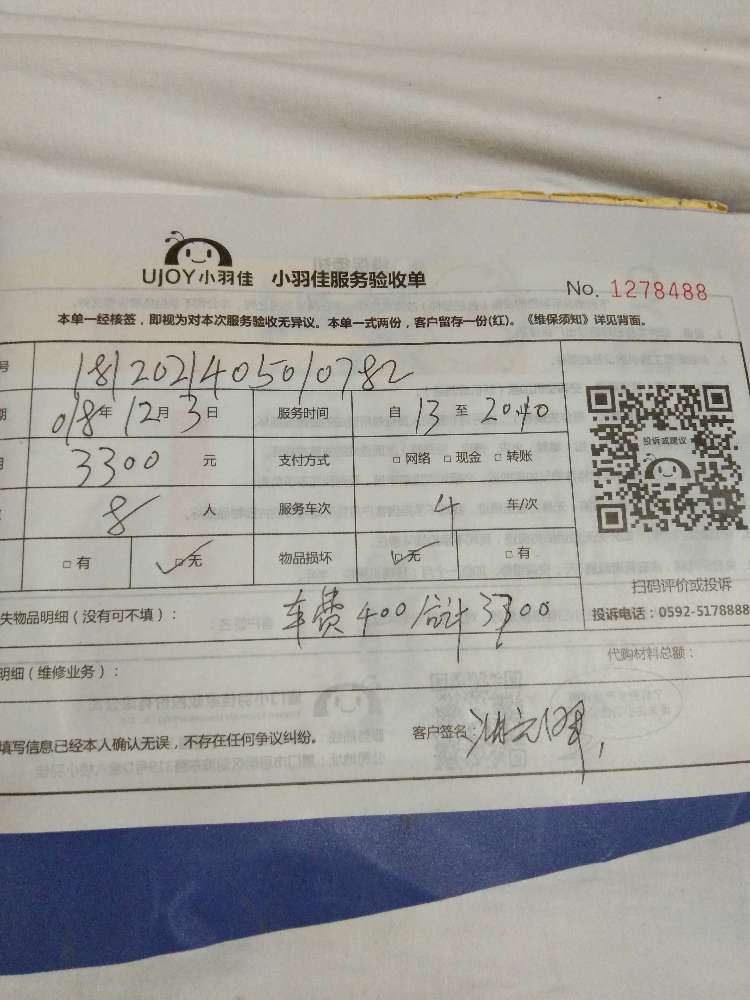 UJOY小羽佳 小羽佳服务验收单
No. 1278488
本单一经核签，即视为对本次服务验收无异议。本单一式两份，客户留存一份(红)。《维保须知》详见背面。
号 1812021405010782
期 018年 12月 3日 服务时间 自 13 至 2040
3300 元 支付方式 □网络 □现金 □转账
8 人 服务车次 4 车/次
□有 □无 物品损坏 □无 □有
投诉或建议
扫码评价或投诉
投诉电话：0592-5178888
失物品明细（没有可不填）： 车费400/合计3300
明细（维修业务）： 代购材料总额：
填写信息已经本人确认无误，不存在任何争议纠纷。 客户签名：